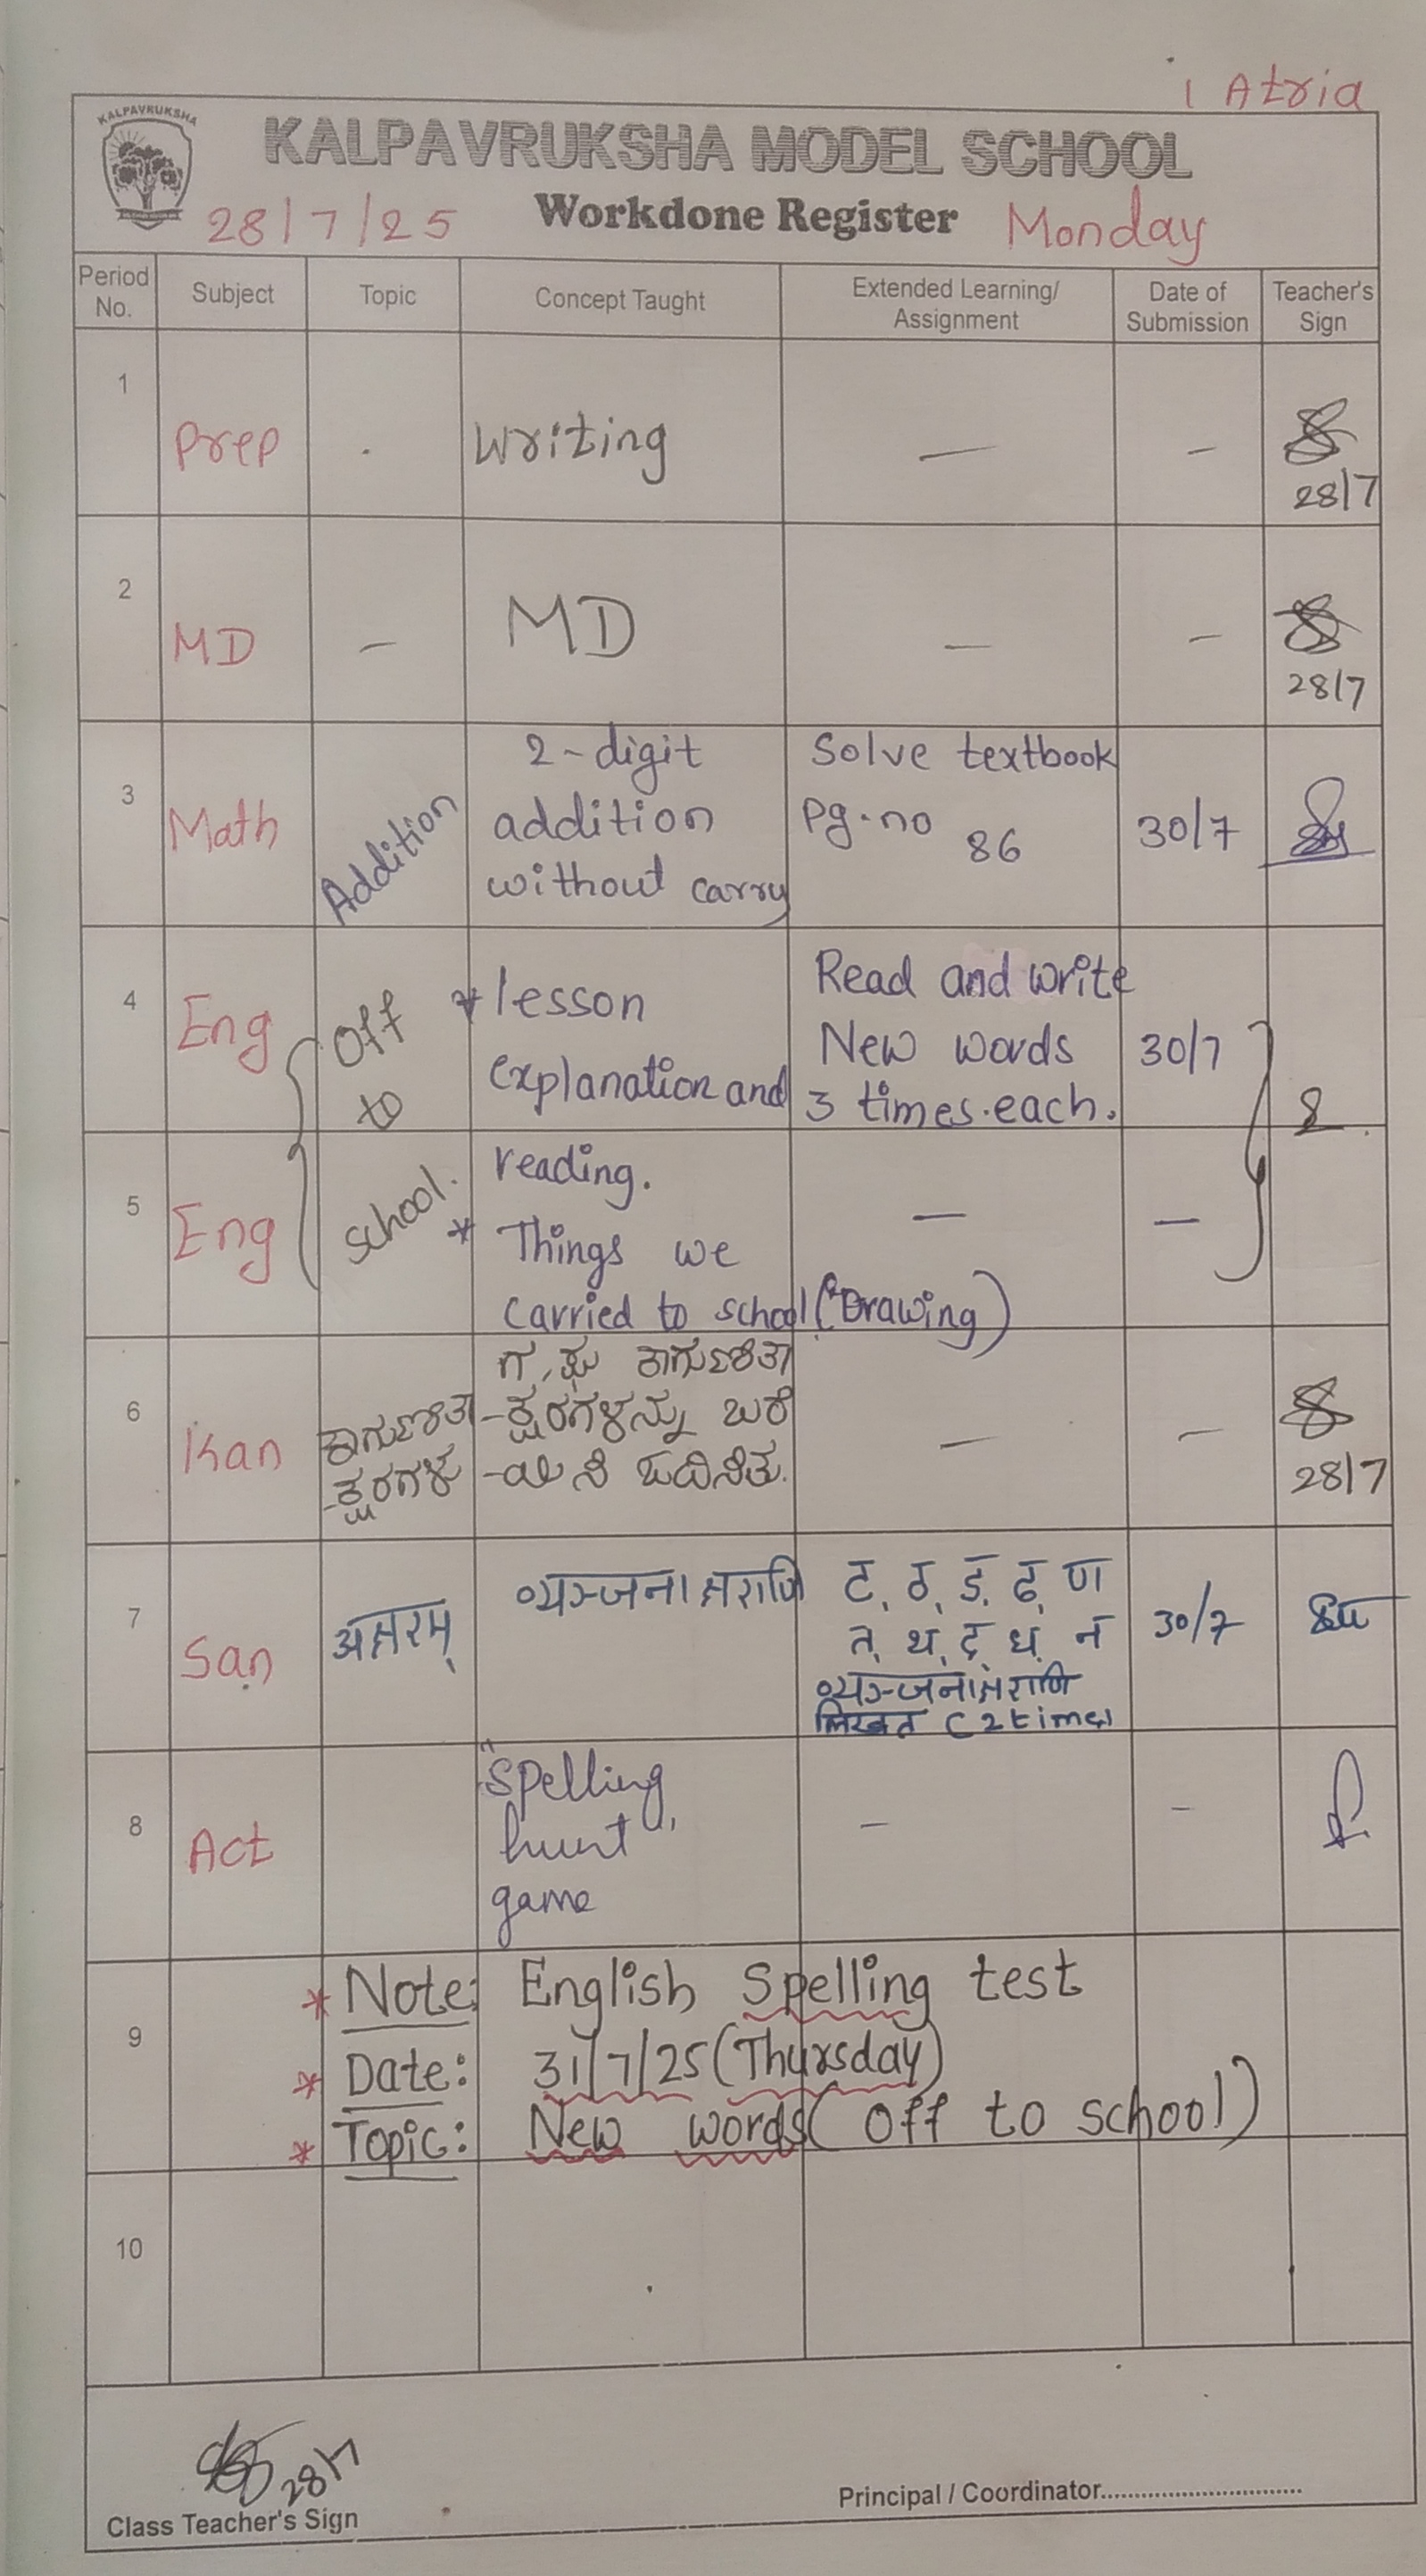 1 Atria
KALPAVRUKSHA
KALPAVRUKSHA MODEL SCHOOL
28/7/25 Workdone Register Monday
Period No. Subject Topic Concept Taught Extended Learning/ Assignment Date of Submission Teacher's Sign
1 Prep . Writing — –
28/7
2 MD – MD — –
28/7
3 Math Addition 2-digit addition without carry Solve textbook Pg.no 86 30/7
4 Eng Off to * lesson explanation and Read and write New words 3 times.each. 30/7
5 Eng school. reading. — —
* Things we carried to school (Drawing)
6 Kan ಕಾಗುಣಿತಾ ಗ, ಘ ಕಾಗುಣಿತಾ — –
-ಕ್ಷರಗಳು -ಕ್ಷರಗಳನ್ನು ಬರೆ
-ಯಿಸಿ ಓದಿಸಿತು.
28/7
7 San अक्षरम् व्यञ्जनाक्षराणि ट, ठ, ड, ढ, ण 30/7
त, थ, द, ध, न
व्यञ्जनाक्षराणि
लिखत (2 times)
8 Act "Spelling hunt" game – –
9 * Note: English Spelling test
* Date: 31/7/25 (Thursday)
* Topic: New words (Off to school)
10
28/7
Class Teacher's Sign
Principal / Coordinator..............................